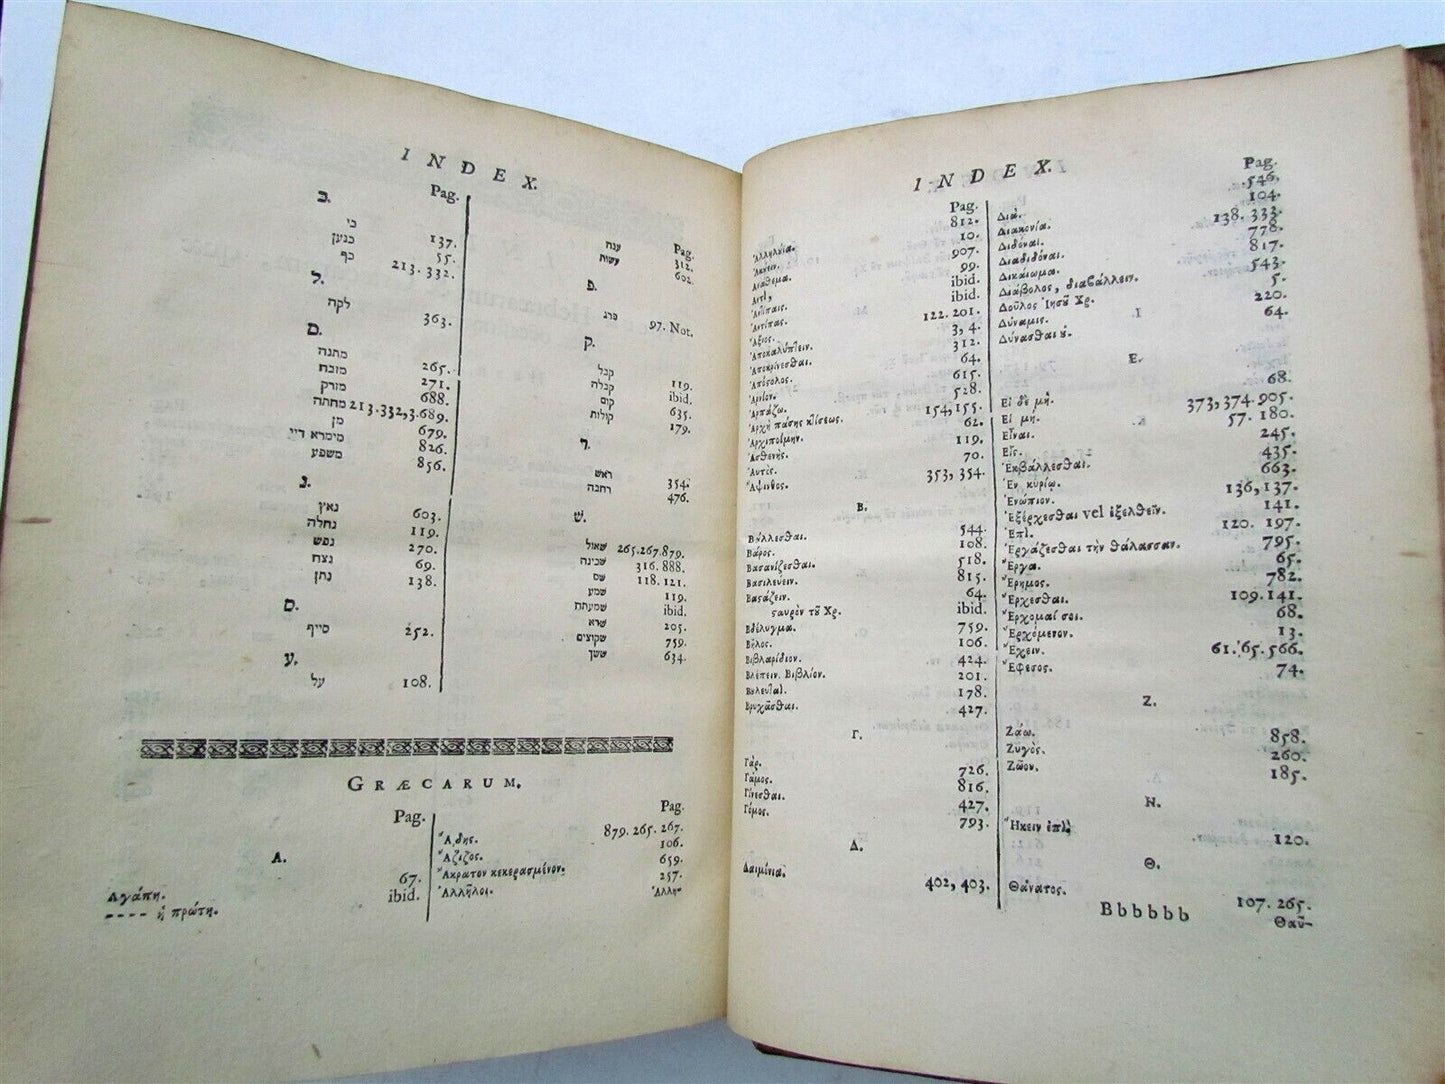 INDEX.
Pag.
כ.
כי 137.
כנען 55.
כף 213. 332.
ל.
לקח 363.
מ.
מתנה 265.
מזבח 271.
מזרק 688.
מחתה 213.332,3.689.
מן 679.
מימרא דיי 826.
משפע 856.
נ.
נאץ 603.
נחלה 119.
נפש 270.
נצח 69.
נתן 138.
ס.
סייף 252.
ע.
על 108.
Pag.
ענה 312.
עשות 602.
פ.
פרג 97. Not.
ק.
קבל 119.
קבלה ibid.
קום 635.
קולות 179.
ר.
ראש 354.
רחנה 476.
ש.
שאול 265.267.879.
שכינה 316.888.
שם 118.121.
שמע 119.
שמעתת ibid.
שרא 205.
שקוצים 759.
ששך 634.
GRÆCARUM.
Pag.
A.
Ἀγάπη. 67.
---- ἡ πρώτη. ibid.
Pag.
Ἅδης. 879. 265. 267.
Ἄζιζος. 106.
Ἄκρατον κεκερασμένον. 659.
Ἀλλήλοι. 257.
Ἀλλη-
INDEX.
Pag.
Ἀλληλύια. 812.
Ἀκύειν. 10.
Ἀνάθεμα. 907.
Ἀντὶ, 99.
Ἀντίπαις. ibid.
Ἀντίπας. ibid.
Ἄξιος. 122. 201.
Ἀποκαλύπτειν. 3, 4.
Ἀποκρίνεσθαι. 312.
Ἀπόστολος. 64.
Ἀρνίον. 615.
Ἁρπάζω. 528.
Ἀρχὴ πάσης κτίσεως. 154, 155.
Ἀρχιποίμην. 62.
Ἀσθενής. 119.
Αὐτὸς. 70.
Ἄψινθος. 353, 354.
B.
Βύλλεσθαι. 544.
Βάρος. 108.
Βασανίζεσθαι. 518.
Βασιλεύειν. 815.
Βαστάζειν. 64.
σταυρὸν τοῦ Χρ. ibid.
Βδέλυγμα. 759.
Βῆλος. 106.
Βιβλαρίδιον. 424.
Βλέπειν. Βιβλίον. 201.
178.
427.
Γ.
Γάρ. 726.
Γάμος. 816.
Γίνεσθαι. 427.
Γόμος. 793.
Δ.
Δαιμόνια. 402, 403.
Pag.
Διὰ. 546,
Διακονία. 104.
Διδόναι. 138. 333.
Διαδιδόναι. 778.
Δικαίωμα. 817.
Διάβολος, διαβάλλειν. 543.
Δοῦλος Ἰησοῦ Χρ. 5.
Δύναμις. 220.
Δύνασθαι ȣ. 64.
E.
Εἰ δὲ μή. 68.
Εἰ μή. 373, 374. 905.
Εἶναι. 57. 180.
Εἷς. 245.
Ἐκβάλλεσθαι. 435.
Ἐν κυρίῳ. 663.
Ἐνώπιον. 136, 137.
Ἐξέρχεσθαι vel ἐξελθεῖν. 141.
Ἐπὶ. 120. 197.
Ἐργάζεσθαι τὴν θάλασσαν. 795.
Ἔργα. 65.
Ἔρημος. 782.
Ἔρχεσθαι. 109.141.
Ἔρχομαί σοι. 68.
Ἐρχόμενον. 13.
Ἔχειν. 61. 65. 566.
Ἔφεσος. 74.
Z.
Ζάω. 858.
Ζυγός. 260.
Ζῶον. 185.
H.
Ἥκειν ἐπί. 120.
Θ.
Θάνατος. 107. 265.
Bbbbbb
Θαῦ-